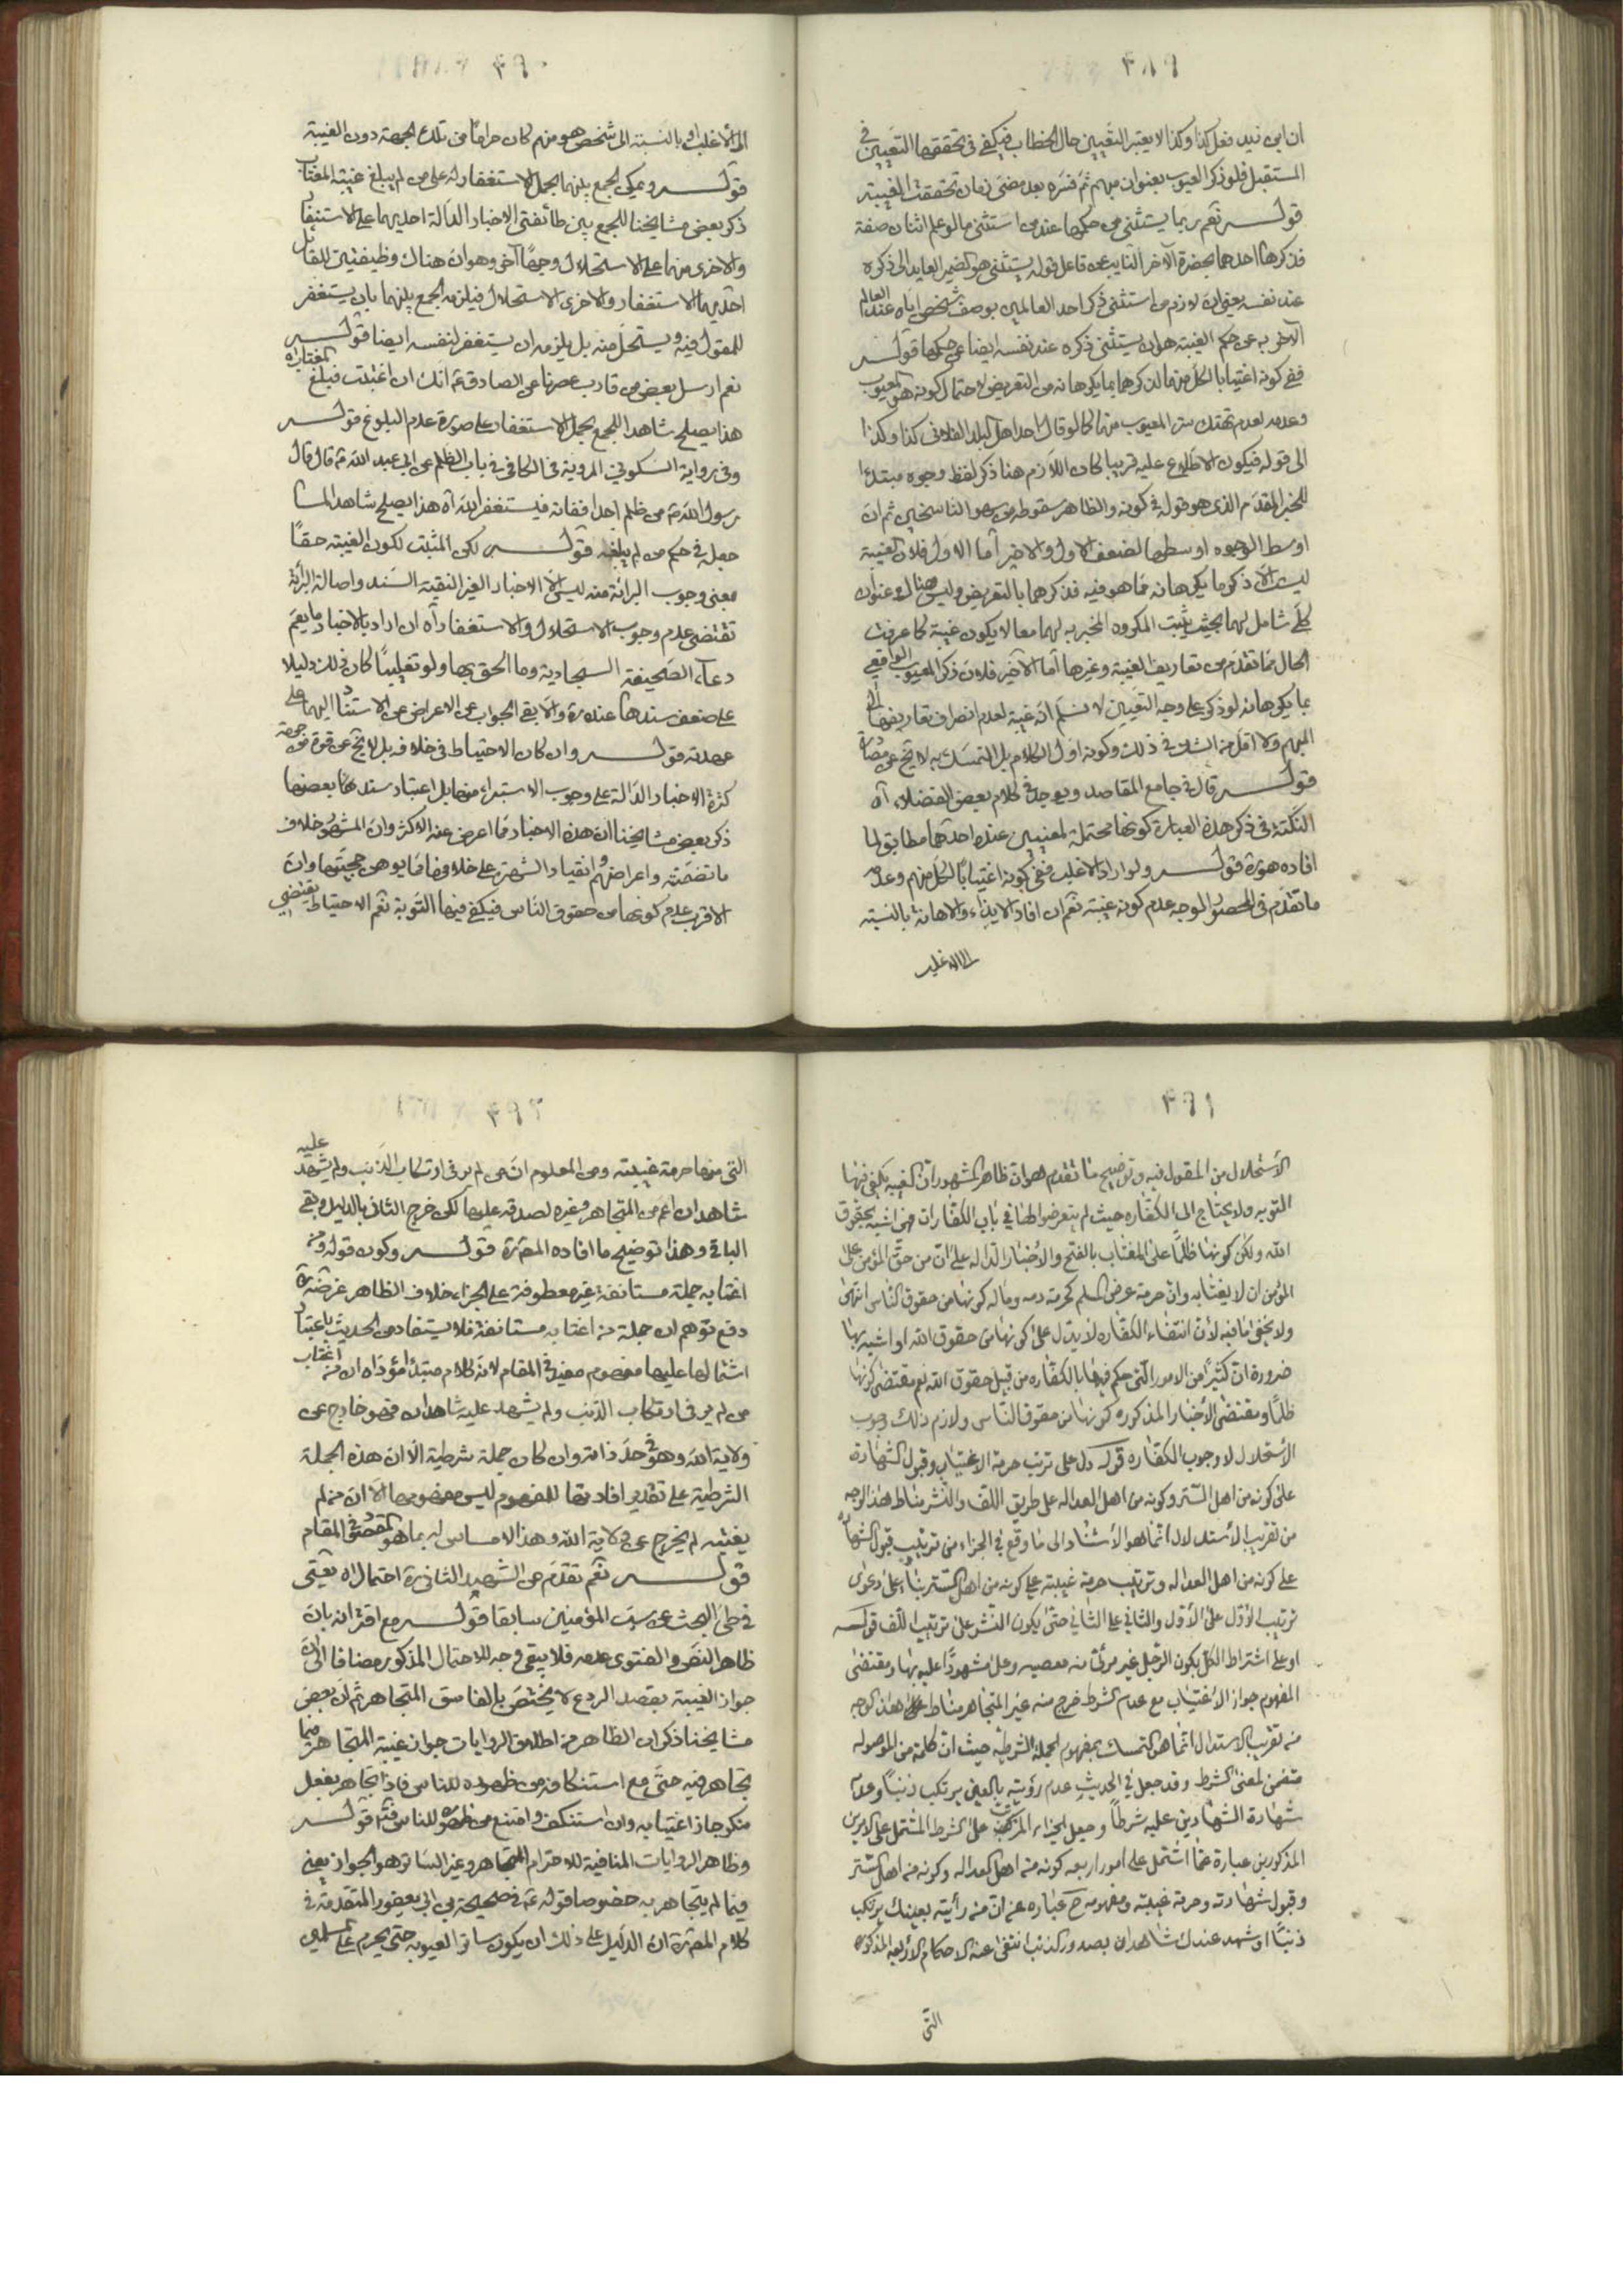 ٤٨٩
ان ابن زيد فعل كذا وكذا لا يعتبر التعيين حال الخطاب فيكفي في تحققها التعيين في
المستقبل فلو ذكر العيوب بعنوان مبهم ثم فسره بعد مضى زمان تحققت الغيبة
قوله نعم ربما يستثنى من حكمها عند من استثنى ما لو علم اثنان صفة
فذكرها احدهما بحضرة الآخر النايب عن فاعل قوله يستثنى هو الضمير العايد الى ذكره
عند نفسه يعنى ان لازم من استثنى ذكر احد العالمين بوصف شخص اياه عند العالم
الآخر به عن حكم الغيبة هو ان يستثنى ذكره عند نفسه ايضا عن حكمها قوله
ففي كونه اغتيابا لكل منهما لذكرهما بما يكرهانه من التعريض لاحتمال كونه هو المعيوب
وعدمه لعدم تهتك ستر المعيوب منهما كما لو قال احد اهل البلد الفلانى كذا وكذا
الى قوله فيكون الاطلاع عليه قريبا كان اللازم هنا ذكر لفظ وجوه مبتدا
للخبر المقدم الذى هو قوله في كونه والظاهر سقوطه من سهو الناسخين ثم ان
اوسط الوجوه اوسطها لضعف الاول والاخير اما الاول فلان الغيبة
ليس الا ذكر ما يكرهانه مما هو فيه فذكرهما بالتعريض وليس هناك عنوان
كلي شامل لهما بحيث يثبت المكروه المخبر به لهما معا لا يكون غيبة كما عرفت
الحال مما تقدم من تعاريف الغيبة وغيرها اما الآخير فلان ذكر المعيوب الواقعي
بما يكرهانه لو ذكر على وجه التعيين لا نسلم انه غيبة لعدم انصراف تعاريفها الى
المبهم ولا اقل من الشك في ذلك وكونه اول الكلام بل التمسك به لا يخ عن مصادرة
قوله قال في جامع المقاصد ويوجد في كلام بعض الفضلاء آه
النكتة في ذكر هذه العبارة كونها محتملة لمعنيين عنده احدهما مطابق لما
افاده هو ره قوله ولو اراد الاغلب ففي كونه اغتيابا لكل منهم وعدمه
ما تقدم في المحصور الموجه عدم كونه غيبة نعم ان افاد الايذاء والاهانة بالنسبة
الى الاغلب
٤٩٠
الى الاغلب او بالنسبة الى شخص هو منهم كان حراما من تلك الجهة دون الغيبة
قوله ويمكن الجمع بينهما بحمل الاستغفار له على من لم يبلغ غيبة المغتاب
ذكر بعض مشايخنا للجمع بين طائفتى الاخبار الدالة احديهما على الاستغفار
والاخرى منهما على الاستحلال وجها آخر وهو ان هناك وظيفتين للقائل
احديهما الاستغفار والاخرى الاستحلال فيلزمه الجمع بينهما بان يستغفر
للمقول فيه ويستحل منه بل يلزمه ان يستغفر لنفسه ايضا قوله
نعم ارسل بعض من قارب عصرنا عن الصادق ع انك ان اغتبت فبلغ المغتاب آه
هذا يصلح شاهدا للجمع بحمل الاستغفار على صورة عدم البلوغ قوله
وفي رواية السكونى المروية في الكافي في باب الظلم عن ابي عبد الله ع قال قال
رسول الله ص من ظلم احدا ففاته فليستغفر الله آه هذا يصلح شاهدا لما
جعل في حكم من لم يبلغه قوله لكن المثبت لكون الغيبة حقا
بمعنى وجوب البرائة منه ليس الا الاخبار الغير النقية السند واصالة البرائة
تقتضى عدم وجوب الاستحلال والاستغفار آه ان اراد بالاخبار ما يعم
دعاء الصحيفة السجادية وما الحق بها ولو تغليبا كان ذلك دليلا
على ضعف سندها عنده ره والا بقي الجواب عن الاعراض عن الاستناد اليهما على
عهدته قوله وان كان الاحتياط في خلافه بل لا يخ عن قوة من جهة
كثرة الاخبار الدالة على وجوب الاستبراء منها بل اعتبار سندها بعضها
ذكر بعض مشايخنا ان هذه الاخبار مما اعرض عنه الاكثر وان المشهور خلاف
ما تضمنته واعراضهم وانقياد الشهرة على خلافها مما يوهن حجيتها وان
الاقرب عدم كونها من حقوق الناس فيكفي فيها التوبة نعم الاحتياط يقتضي
٤٩١
الاستحلال من المقول فيه وتوضيح ما تقدم هو ان ظاهر المشهور ان الغيبه يكفى فيها
التوبه ولا يحتاج الى الكفاره حيث لم يتعرضوا لها في باب الكفارات فهى اشبه بحقوق
الله ولكن كونها ظلما على المغتاب بالفتح والاخبار الداله على ان من حق المؤمن على
المؤمن ان لا يغتابه وان حرمة عرض المسلم كحرمة دمه وماله كونها من حقوق الناس انتهى
ولا يخفى ما فيه لان انتفاء الكفاره لا يدل على كونها من حقوق الله او اشبه بها
ضرورة ان كثيرا من الامور التى حكم فيها بالكفاره من قبيل حقوق الله نعم مقتضى كونها
ظلما ومقتضى الاخبار المذكوره كونها من حقوق الناس ولازم ذلك وجوب
الاستحلال لا وجوب الكفاره قوله دل على ترتب حرمة الاغتياب وقبول الشهادة
على كونه من اهل الستر وكونه من اهل العداله على طريق اللف والنشر مناط هذا الوجه
من تقريب الاستدلال انما هو الاستناد الى ما وقع في الجزاء من ترتيب قبول الشهادة
على كونه من اهل العداله وترتيب حرمة غيبته على كونه من اهل الستر بناء على دعوى
ترتيب الاول على الاول والثاني على الثاني حتى يكون النشر على ترتيب اللف قوله
او على اشتراط الكل بكون الرجل غير مرئى منه معصيه ولا مشهودا عليه بها ومقتضى
المفهوم جواز الاغتياب مع عدم الشرط خرج منه غير المتجاهر مناط هذا الوجه
من تقريب الاستدلال انما هو التمسك بمفهوم الجملة الشرطيه حيث ان كلمة من الموصوله
متضمن لمعنى الشرط وقد جعل في الحديث عدم رؤيته بالعين يرتكب ذنبا وعدم
شهادة الشاهدين عليه شرطا وجعل الجزاء المترتب على الشرط المشتمل على الامرين
المذكورين عبارة عما اشتمل على امور اربعه كونه من اهل العداله وكونه من اهل الستر
وقبول شهادته وحرمة غيبته ومفهومه ح عباره عن ان من رأيته بعينك يرتكب
ذنبا او شهد عندك شاهدان بصدور الذنب انتفى عنه الاحكام الاربعه المذكوره
التى
٤٩٢
التى منها حرمة غيبته ومن المعلوم ان من لم ير في ارتكاب الذنب ولم يشهد عليه
شاهدان اعم من المتجاهر وغيره لصدقه عليهما لكن خرج الثانى بالدليل وبقي
الباقي وهذا توضيح ما افاده المص ره قوله وكون قوله ومن
اغتابه جملة مستانفة غير معطوفة على الجزاء خلاف الظاهر غرضه ره
دفع توهم ان جملة من اغتابه مستانفة فلا يستفاد من الحديث باعتبار
اشتمالها عليها مفهوم مفيد في المقام لانه كلام مبتدا مؤداه ان من اغتاب
من لم ير في ارتكاب الذنب ولم يشهد عليه شاهدان فهو خارج عن
ولاية الله وهو في حد ذاته وان كان جملة شرطية الا ان هذه الجملة
الشرطية على تقدير افادتها للمفهوم ليس مفهومها الا ان من لم
يغتبه لم يخرج عن ولاية الله وهذا لا مساس له بما هو المقصود في المقام
قوله نعم تقدم عن الشهيد الثانى ره احتمال آه يعنى
في طى البحث عن سب المؤمنين سابقا قوله مع اقترانه بان
ظاهر النص والفتوى عدمه فلا يبقى وجه للاحتمال المذكور مضافا الى ان
جواز الغيبة بقصد الردع لا يختص بالفاسق المتجاهر ثم ان بعض
مشايخنا ذكر ان الظاهر من اطلاق الروايات جواز غيبة المتجاهر فيما
تجاهر فيه حتى مع استنكافه من ظهوره للناس فاذا تجاهر بفعل
منكر جاز اغتيابه وان استنكف وامتنع من ظهوره للناس قوله
وظاهر الروايات النافية للاحترام المتجاهر وغير الساتر هو الجواز يعنى
فيما لم يتجاهر به خصوصا قوله ع في صحيحة ابن ابي يعفور المتقدمة في
كلام المص ره ان الدليل على ذلك ان يكون ساترا لعيوبه حتى يحرم على المسلمين